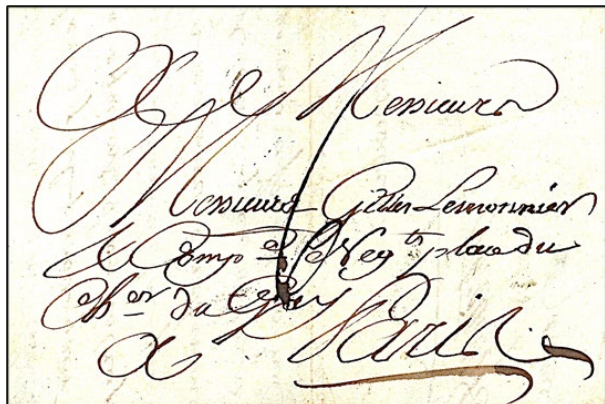 A Messieurs
Messieurs Gilles Lemonnier
& Comp.e Neg.ts place du
Ch.er du Guet
a Paris